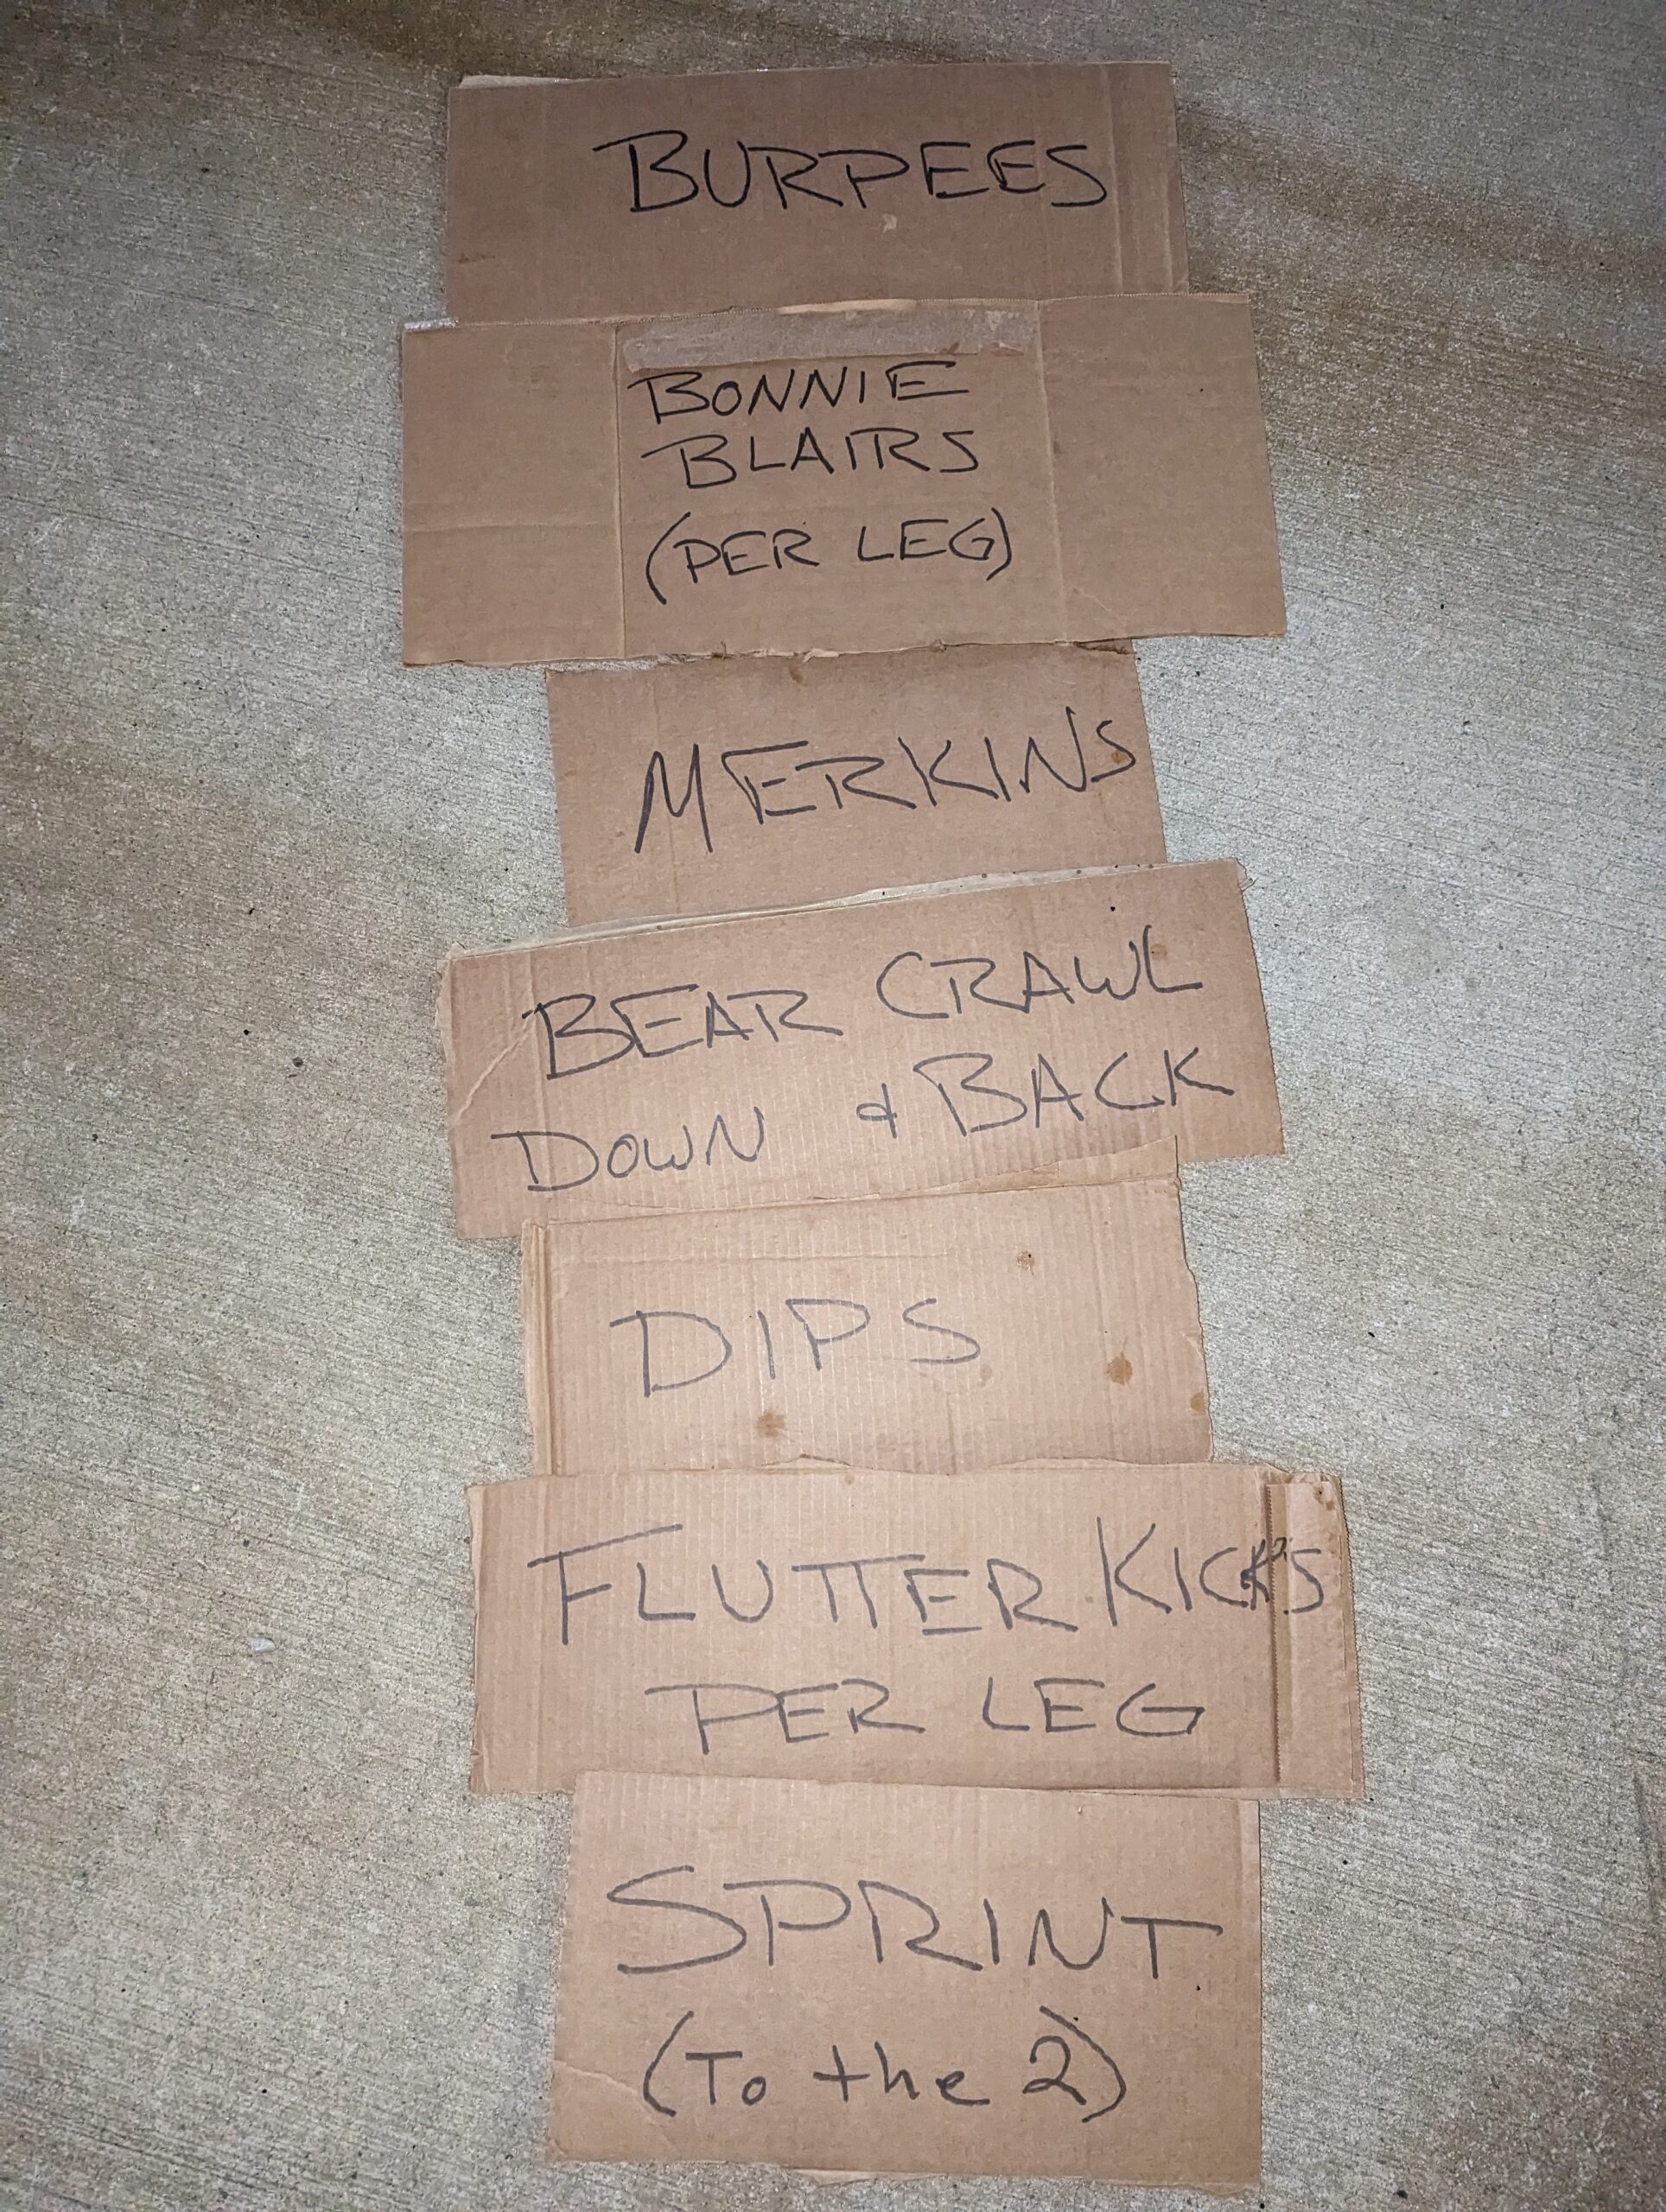 BURPEES
BONNIE
BLAIRS
(PER LEG)
MERKINS
BEAR CRAWL
DOWN & BACK
DIPS
FLUTTER KICKS
PER LEG
SPRINT
(To the 2)